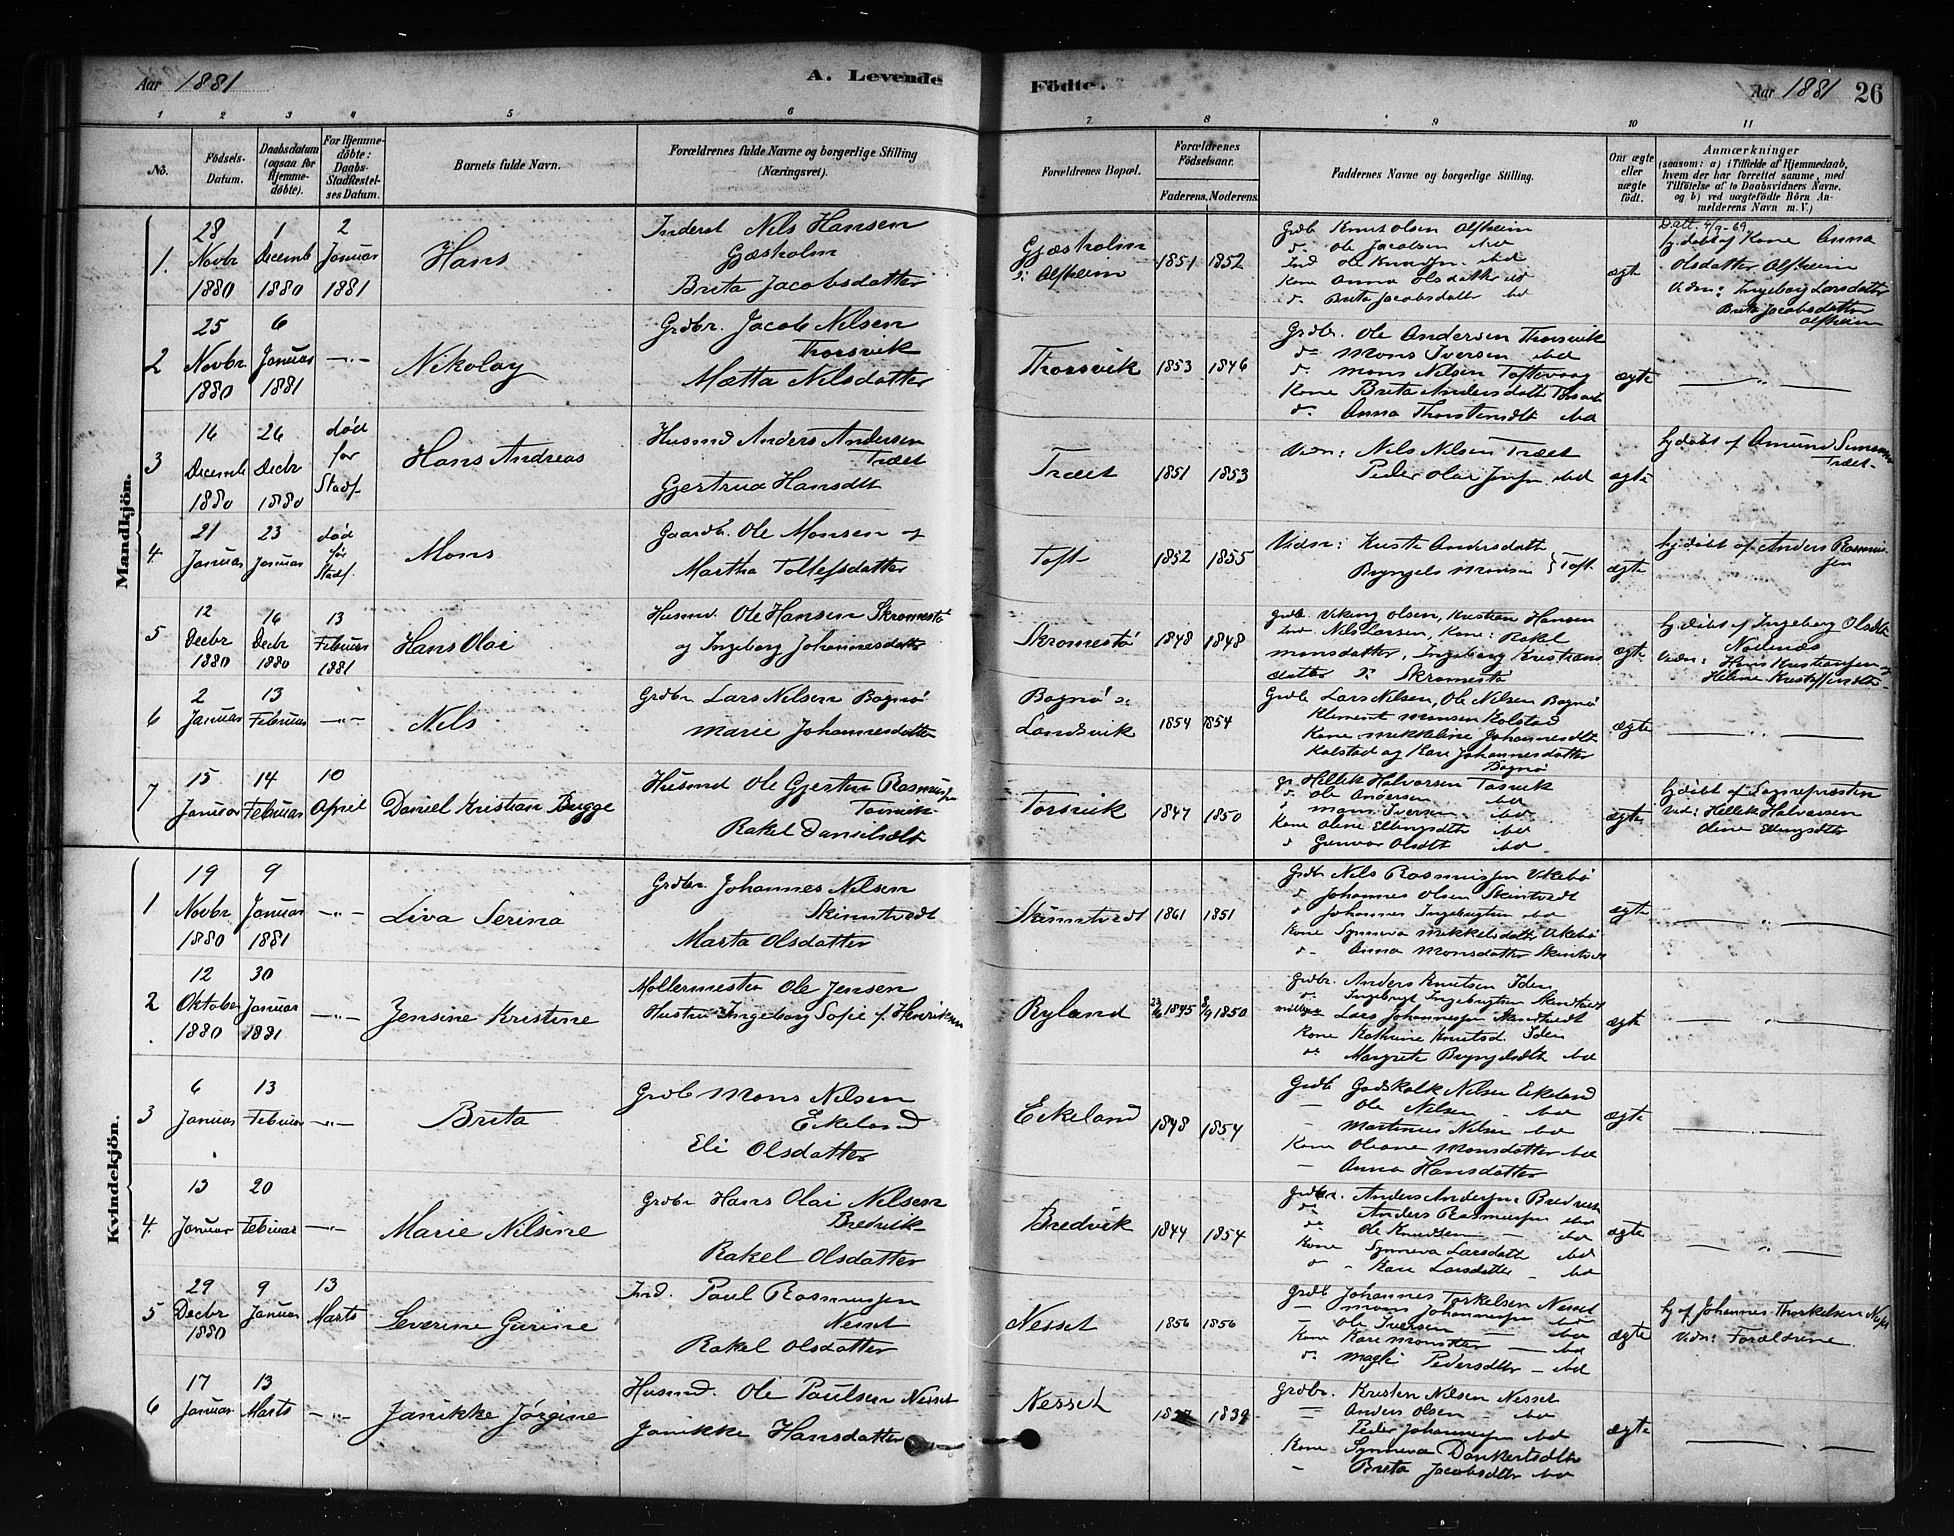 Aar 1881 A. Levende
Fødte. Aar 1881 26
1 2 3 4 5 6
7 8 9 10 11
No.
Fødsels-Datum.
Daabsdatum (ogsaa for Hjemme-døbte).
For Hjemme-døbte: Daabs-Stadfæstelses Datum.
Barnets fulde Navn.
Forældrenes fulde Navne og borgerlige Stilling (Næringsvei).
Forældrenes Bopæl.
Forældrenes Fødselsaar.
Faderens. Moderens.
Faddernes Navne og borgerlige Stilling.
Om ægte eller uægte født.
Anmærkninger
(saasom: a) i Tilfælde af Hjemmedaab, hvem der har forrettet samme, med Tilføielse af to Daabsvidners Navne, og b) ved uægtefødte Børn Anmelderens Navn m. V.)
Mandkjøn.
1. 28 Novbr 1880
1 Decemb 1880
2 Januar 1881
Hans
Inderst Nils Hansen
Gjæsholm
Brita Jacobsdatter
Gjæsholm
Alfheim
1851 1852
Grdb Knut Olsen Alfheim
d. Ole Jacobsen ibd
Ind Ole ibd
Kone Anna Olsdatter ibd
d. Brita Jacobsdatter ibd
ægte
Datt. 4/9-69
hj.døbt af Kone Anna
Olsdatter Alfheim
Vidn: Ingeborg Larsdatter
Brita Jacobsdatter
Alfheim
2 25 Novbr 1880
6 Januar 1881
-"-
Nikolay
Grdbr. Jacob Nilsen
Thorsvik
Mætta Nilsdatter
Thorsvik
1853 1846
Grdbr. Ole Andersen Thorsvik
d= Mons Iversen ibd
d. Mons Nilsen Toftevaag
Kone Brita Andersdatt
d. Anna ibd
ægte
"
3 16 Decemb 1880
26 Decbr 1880
død for Stadf.
Hans Andreas
Husmd Anders Andersen
Træet
Gjertrud Hansdtt
Træet
1851 1853
Vidn: Nils Nilsen Træet
Peder Olai ibd
ægte
hj.døbt af Amund
Træet
4. 21 Januar
23 Januar
død før Stadf.
Mons
Gaardb. Ole Monsen og
Martha Tollefsdatter
Toft
1852 1855
Vidn: Andersdatt
Bryngels Monsen } Toft
ægte
hj.døbt af Anders Rasmus-
sen
5 12 Decbr 1880
16 Decbr 1880
13 Februar 1881
Hans Olai
Husmd. Ole Hansen Skromestø
og Ingeborg Johannesdatter
Skromestø
1848 1848
Grdb. Viking Olsen, Kristian Hansen
Ind Nils Larsen, Kone: Rakel
Monsdatter, Ingeborg Kristians
datter Skromestø
ægte
hj.døbt af Ingeborg Olsdtr
Vidn: Hans Kristiansen og
Helene
6 2 Januar
13 Februar
-"-
Nils
Grdbr Lars Nilsen Bognø
Marie Johannesdatter
Bognø
Landsvik
1854 1854
Grdb Lars Nilsen, Ole Nilsen Bognø
Klement Monsen Kolstad
Kone Mikkeline Johannesdtt
Kolstad og Kari Johannesdatter
Bognø
ægte
"
7 15 Januar
14 Februar
10 April
Daniel Kristian Bugge
Husmd Ole Gjertin Rasmussen
Torsvik
Rakel Danielsdtt
Torsvik
1847 1850
gr Hellik Halvorsen Tosvik
d. Ole Andersen ibd
Mons Iversen ibd
Kone Oline Ellingsdtr ibd
d Gunvor Olsdtt ibd
ægte
hj.døbt af Sognepresten
Vid: Hellik Halvorsen
Oline Ellingsdtr
Kvindekjøn.
1 19 Novbr 1880
9 Januar 1881
-"-
Liva Serina
Grdbr Johannes Nilsen
Skinntvedt
Marta Olsdatter
Skinntvedt
1861 1851
Grdb Nils Rasmussen Vikebø
d Johannes Olsen Skintvedt
d Johannes Ingebrigtsen ibd
Kone Synneva Mikkelsdatter Vikebø
d. Anna Monsdatter Skintvedt
ægte
"
2 12 Oktober 1880
30 Januar 1881
-"-
Jensine Kristine
Møllermester Ole Jensen
Hustru Ingeborg Sofie f. Henriksen
Ryland
1845 8/9 1850
Grdbr. Anders Knutsen Iden
d. Ingebrigt Ingebrigtsen
Lars Johannessen
Kone Kathrine Knutsd. Iden
d Margrete Bryngelsdtt ibd
ægte
"
3 6 Januar
13 Februar
-"-
Brita
Grdb Mons Nilsen
Eikeland
Eli Olsdatter
Eikeland
1848 1854
Grdb Godskalk Nilsen Eikeland
- Ole Nilsen - ibd
- Martinus Nilsen ibd
Kone Oleane Monsdatter ibd
- Anna Hansdatter
ægte
4. 13 Januar
20 Februar
-"-
Marie Nilsine
Grdbr Hans Olai Nilsen
Bredvik
Rakel Olsdatter
Bredvik
1844 1854
Grdbr. Anders Andersen Bredvik
d. Anders Rasmussen ibd
d. Ole Knudsen - ibd
Kone Synneva Larsdatt ibd
d - Kari Larsdatter - ibd
ægte
"
5 29 Decbr 1880
9 Januar
13 Marts
Severine Gurine
Ind. Paul Rasmussen
Nesset
Rakel Olsdatter
Nesset
1856 1856
Grdb Johannes Torkelsen Nesset
- Mons Johannessen ibd
- Ole Iversen - ibd
Kone Kari Monsdtr - ibd
d. Magli Pedersdtr - ibd
ægte
hj af Johannes Thorkelsen
Vidn: Forældrene.
6 17 Januar
13 Marts
-"-
Janikke Jørgine
Husmd. Ole Paulsen Nesset
Janikke Hansdatter
Nesset
1839
Grdbr. Kristen Nilsen Nesset
= Anders Olsen - ibd
Peder Johannessen ibd
Kone Synneva Dankertsdtr
- Brita Jacobsdtr ibd
ægte